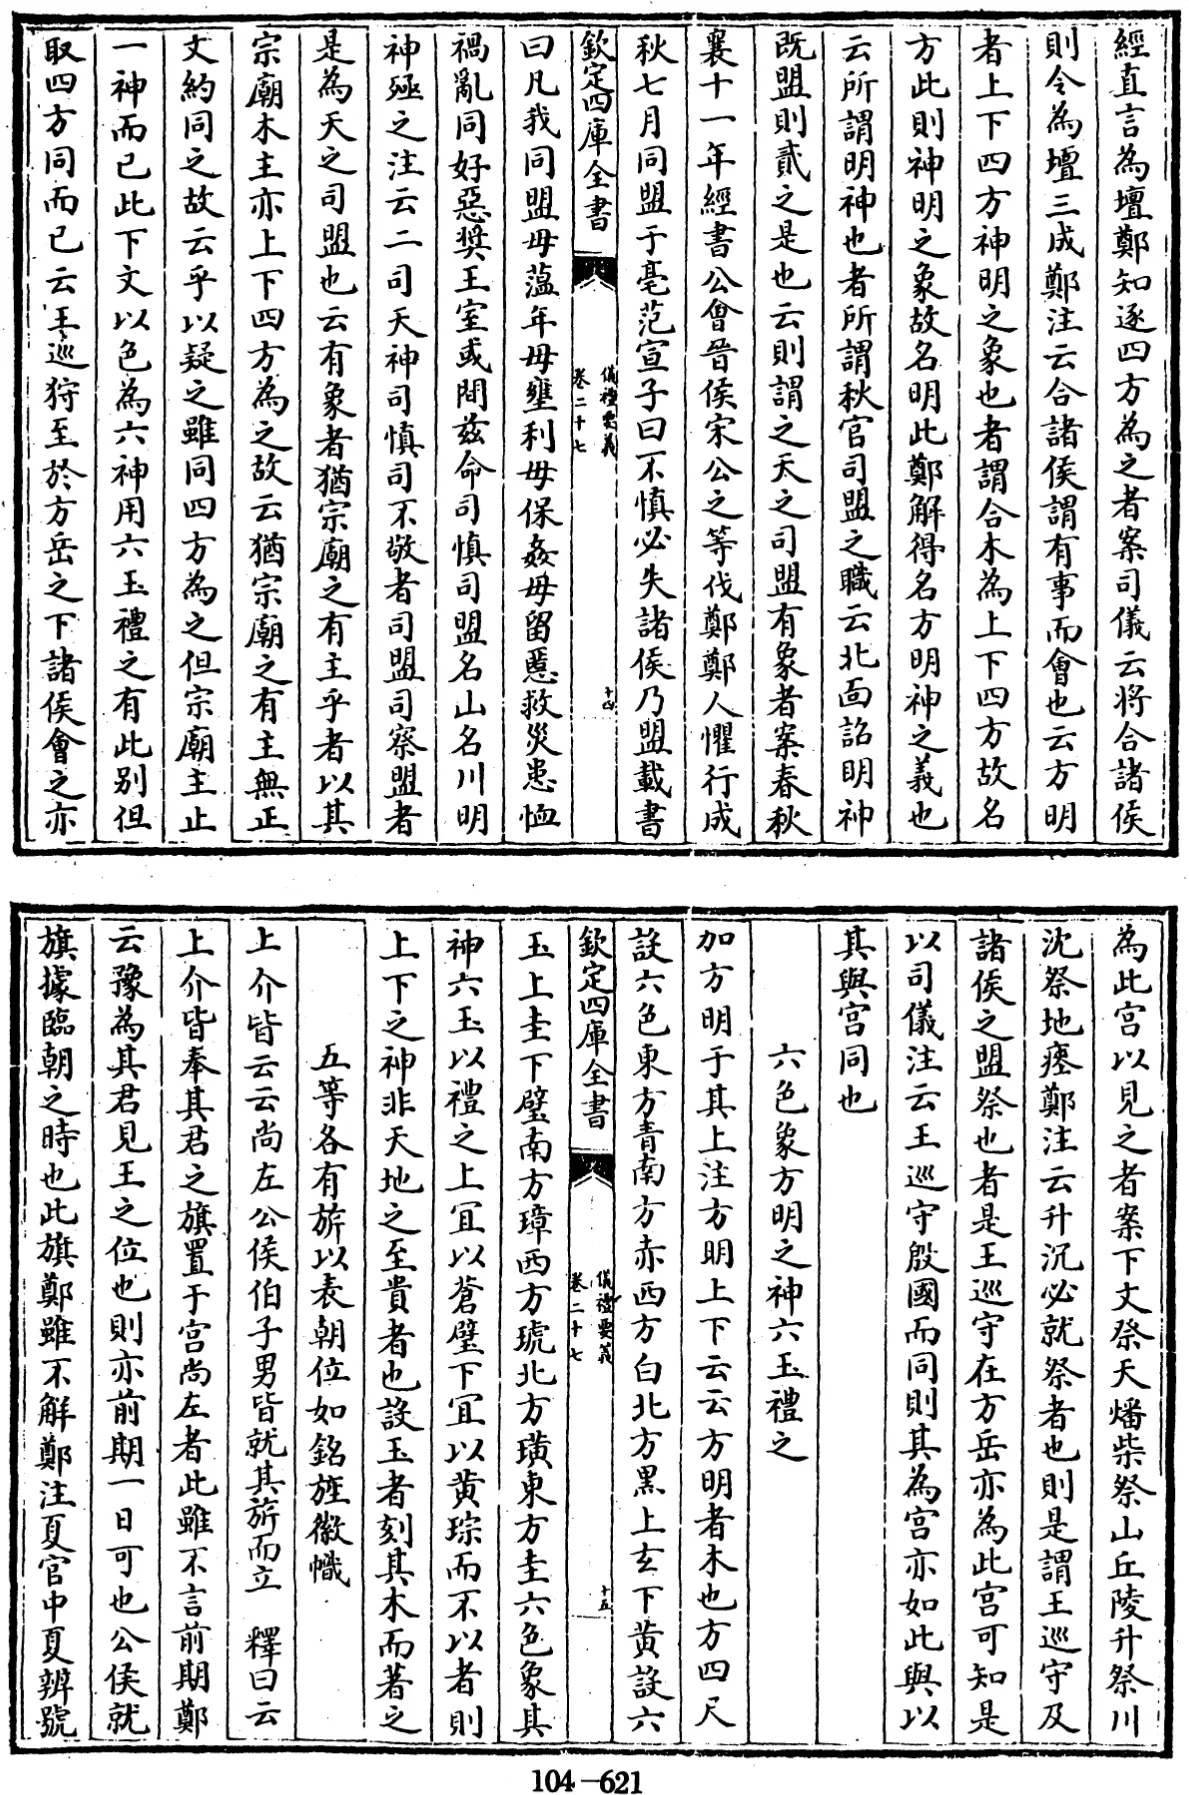 經直言為壇鄭知逐四方為之者案司儀云將合諸侯
則令為壇三成鄭注云合諸侯謂有事而會也云方明
者上下四方神明之象也者謂合木為上下四方故名
方此則神明之象故名明此鄭解得名方明神之義也
云所謂明神也者所謂秋官司盟之職云北面詔明神
既盟則貳之是也云則謂之天之司盟有象者案春秋
襄十一年經書公會晉侯宋公之等伐鄭鄭人懼行成
秋七月同盟于亳范宣子曰不慎必失諸侯乃盟載書
欽定四庫全書
儀禮要義
卷二十七
十四
曰凡我同盟毋薀年毋壅利毋保姦毋留慝救災患恤
禍亂同好惡奬王室或間茲命司慎司盟名山名川明
神殛之注云二司天神司慎司不敬者司盟司察盟者
是為天之司盟也云有象者猶宗廟之有主乎者以其
宗廟木主亦上下四方為之故云猶宗廟之有主無正
文約同之故云乎以疑之雖同四方為之但宗廟主止
一神而已此下文以色為六神用六玉禮之有此別但
取四方同而已云王巡狩至於方岳之下諸侯會之亦
為此宫以見之者案下文祭天燔柴祭山丘陵升祭川
沈祭地瘞鄭注云升沉必就祭者也則是謂王巡守及
諸侯之盟祭也者是王巡守在方岳亦為此宫可知是
以司儀注云王巡守殷國而同則其為宫亦如此與以
其與宫同也
六色象方明之神六玉禮之
加方明于其上注方明上下云云方明者木也方四尺
設六色東方青南方赤西方白北方黑上玄下黄設六
欽定四庫全書
儀禮要義
卷二十七
十五
玉上圭下璧南方璋西方琥北方璜東方圭六色象其
神六玉以禮之上冝以蒼璧下冝以黄琮而不以者則
上下之神非天地之至貴者也設玉者刻其木而著之
五等各有旂以表朝位如銘旌徽幟
上介皆云云尚左公侯伯子男皆就其旂而立 釋曰云
上介皆奉其君之旗置于宫尚左者此雖不言前期鄭
云豫為其君見王之位也則亦前期一日可也公侯就
旗據臨朝之時也此旗鄭雖不解鄭注夏官中夏辨號
104-621